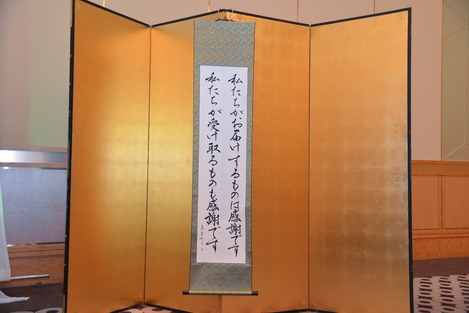 私たちがお届けするものは感謝です
私たちが受け取るものも感謝です